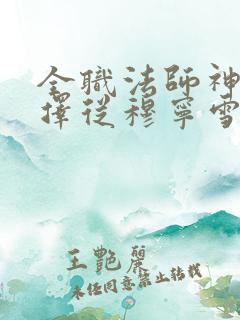 全職法師神
擇從穆寧雪
王艷麗
未经同意禁止转载